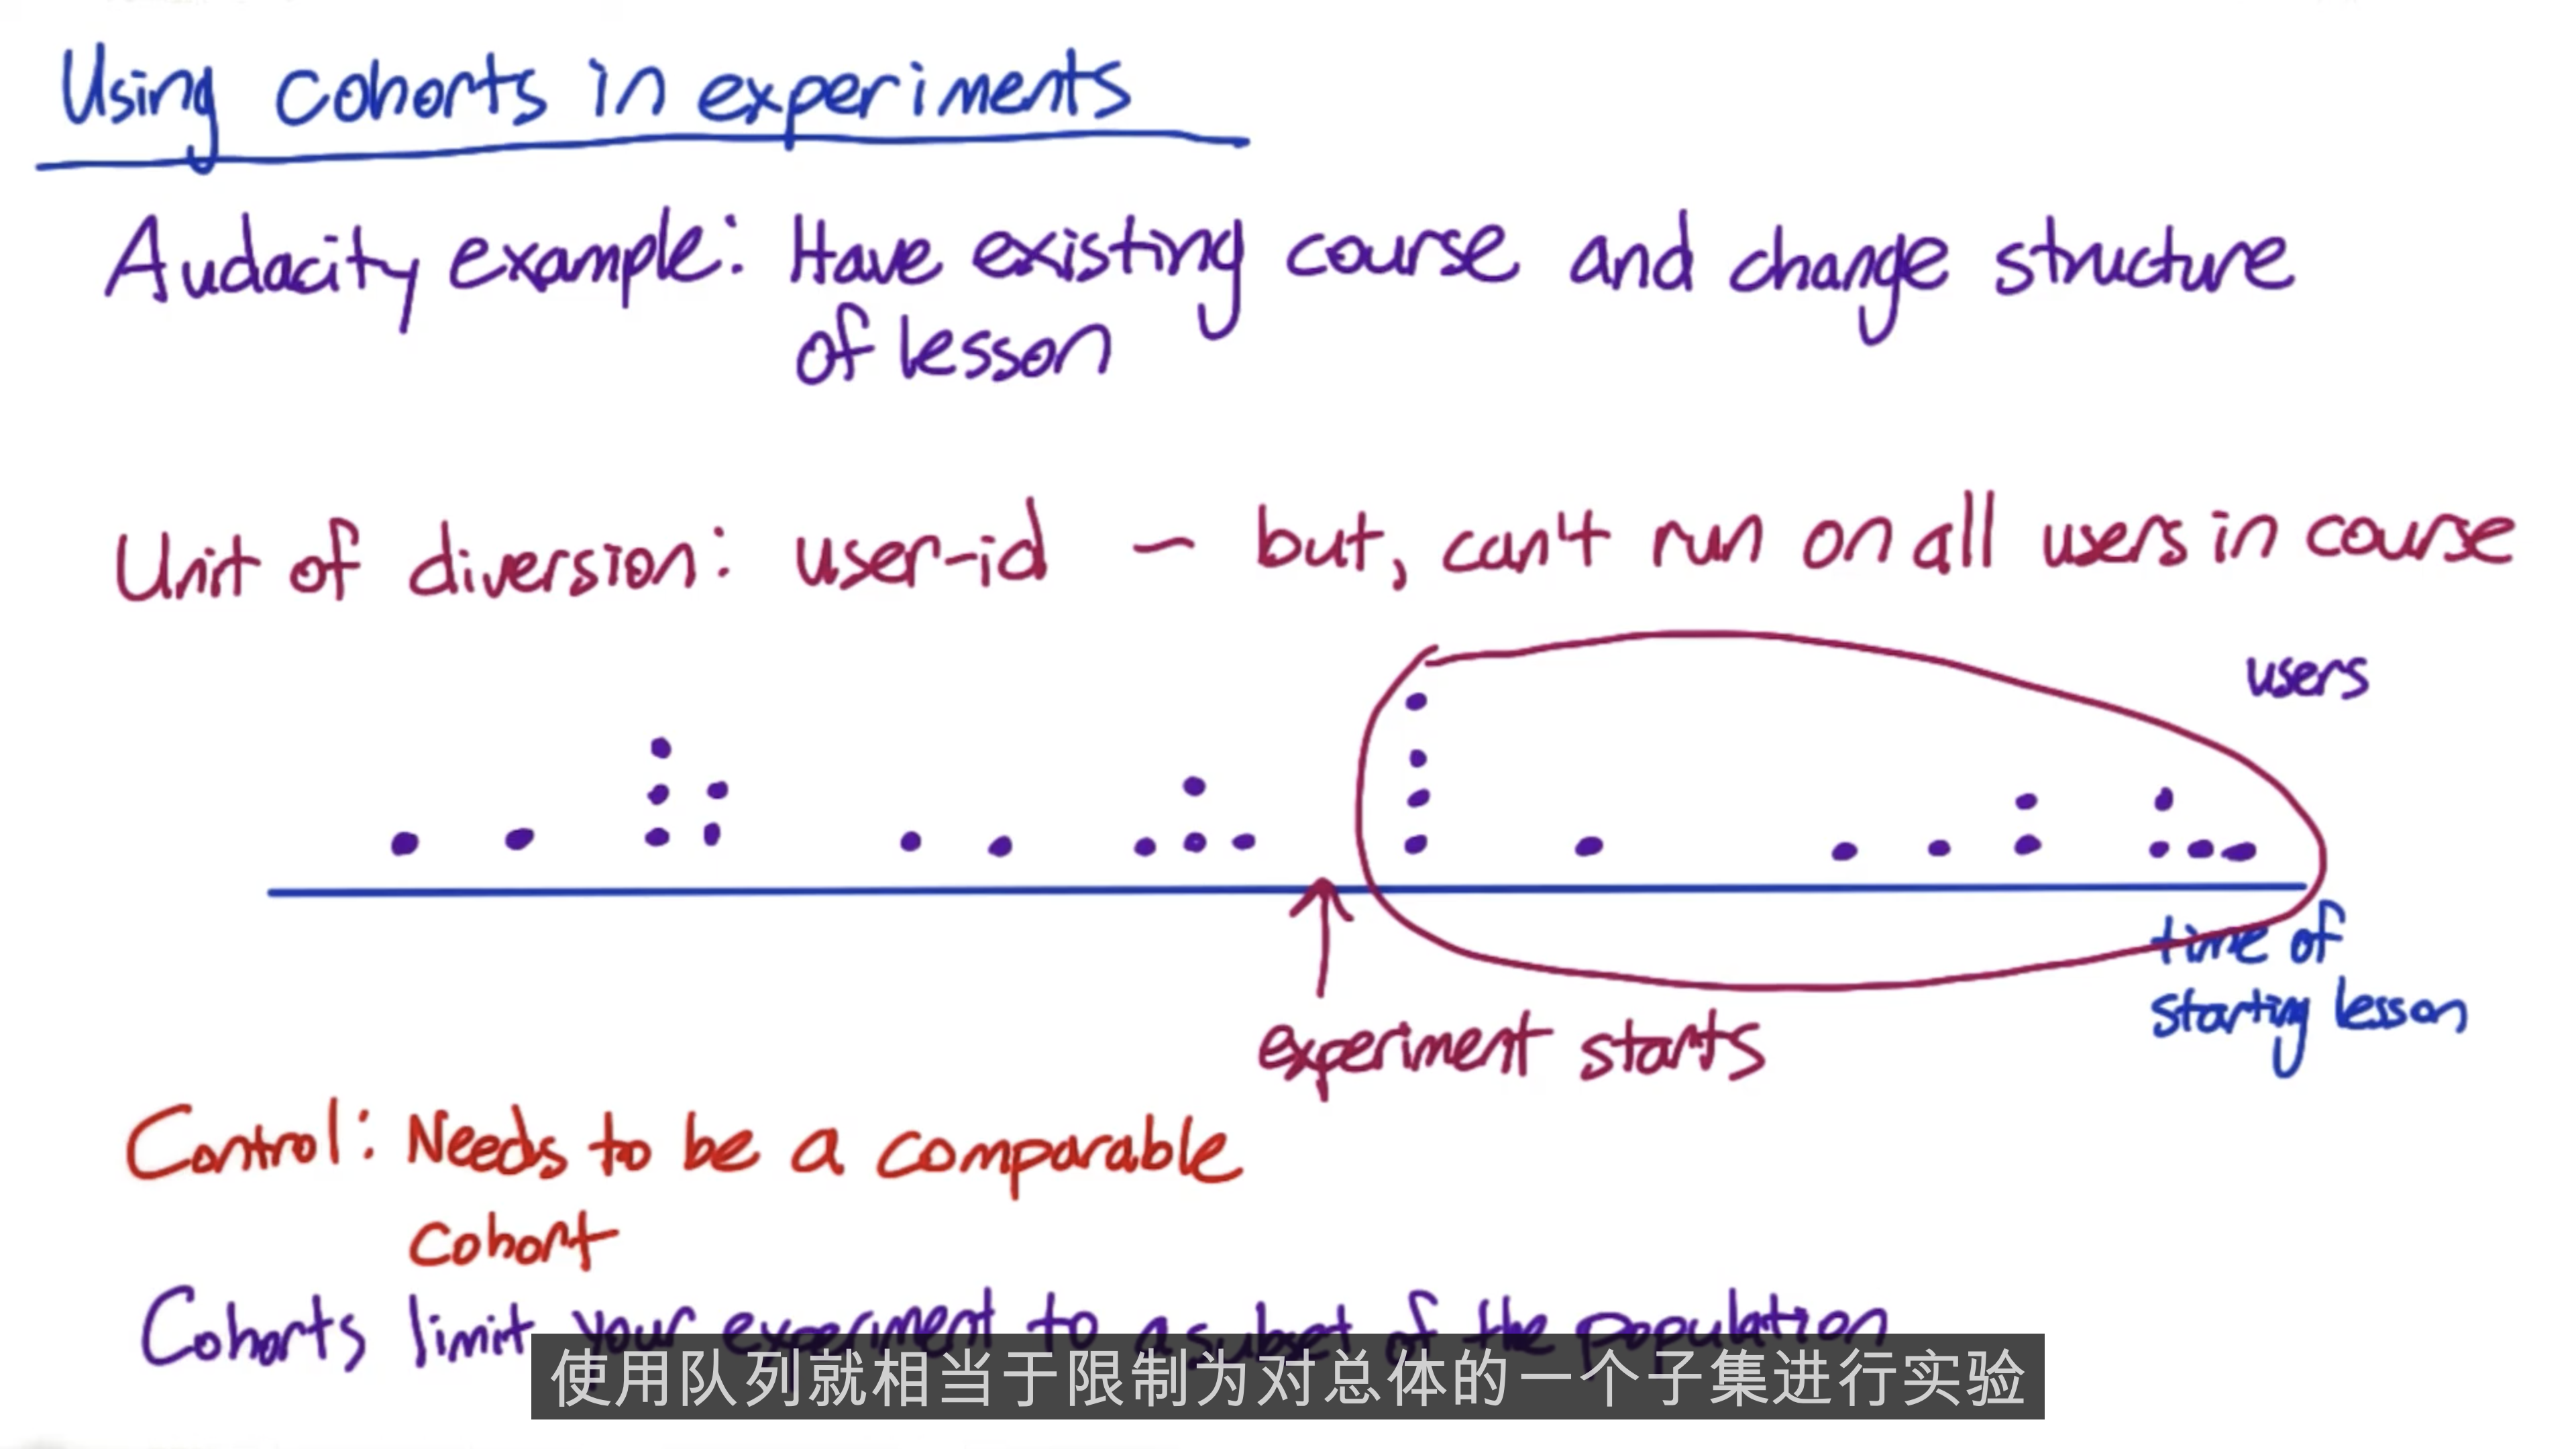 Using cohorts in experiments
Audacity example: Have existing course and change structure
of lesson
Unit of diversion: user-id - but, can't run on all users in course
users
time of
starting lesson
experiment starts
Control: Needs to be a comparable
cohort
Cohorts limit your experiment to a subset of the population
使用队列就相当于限制为对总体的一个子集进行实验